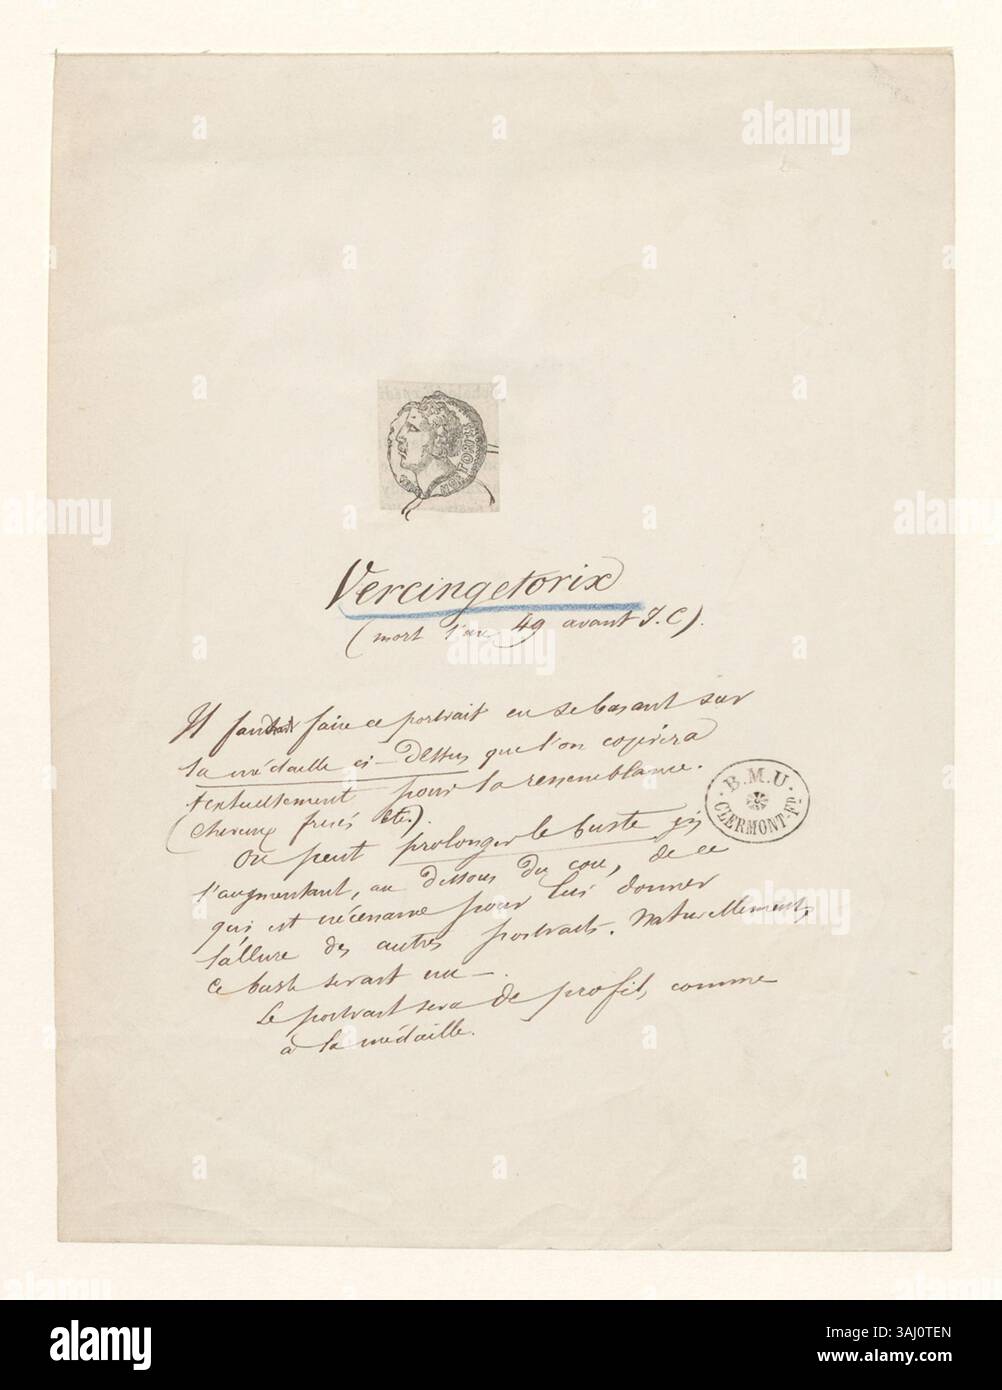 Vercingetorix
(mort l'an 49 avant J. C).
Il faudrait faire ce portrait en se basant sur
la médaille ci-dessus que l'on copiera
textuellement pour la ressemblance.
(cheveux frisés etc.)
On peut prolonger le buste
l'augmentant, au dessous du cou, de ce
qui est nécessaire pour lui donner
l'allure des autres portraits. Naturellement,
ce buste serait nu -.
Le portrait sera de profil, comme
à la médaille.
B.M.U
CLERMONT-Fd
alamy
Image ID: 3AJ0TEN
www.alamy.com